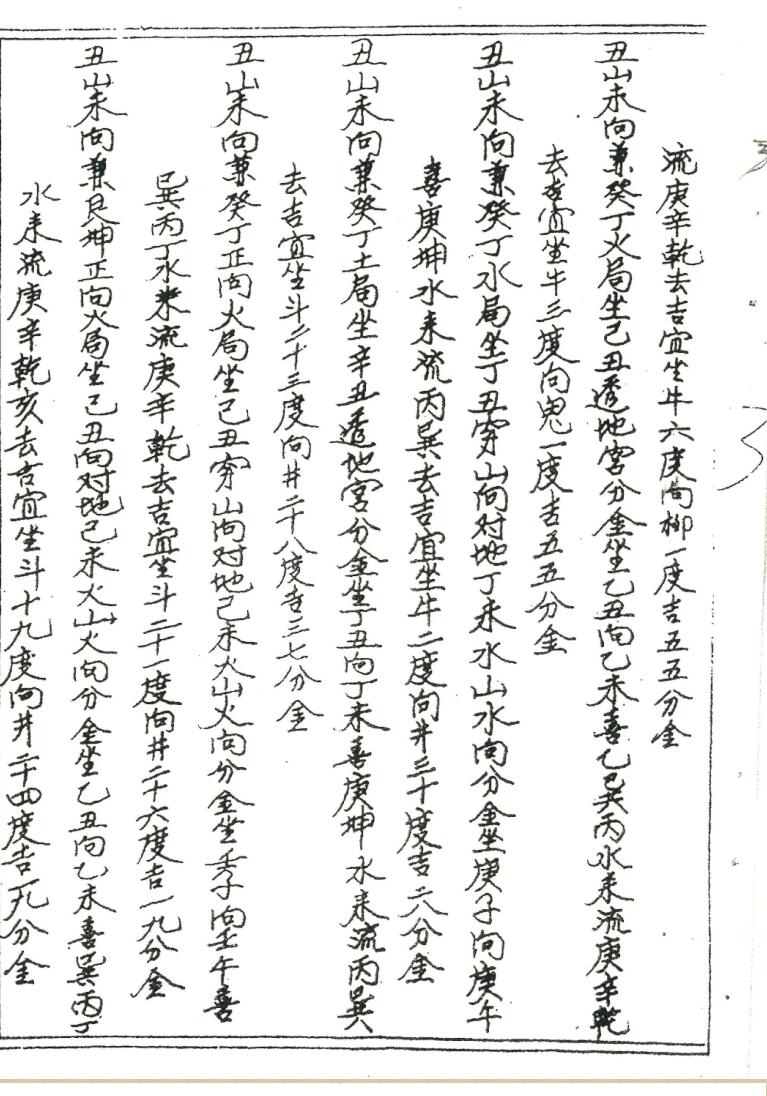 流庚辛乾去吉宜坐牛六度向柳一度吉五五分金
丑山未向兼癸丁火局坐己丑透地宫分金坐乙丑向乙未喜乙巳巽丙水来流庚辛乾
去吉宜坐牛三度向鬼一度吉五五分金
丑山未向兼癸丁水局坐丁丑穿山向对地丁未水山水向分金坐庚子向庚午
喜庚坤水来流丙巽去吉宜坐牛二度向井三十度吉二八分金
丑山未向兼癸丁土局坐辛丑透地宫分金坐丁丑向丁未喜庚坤水来流丙巽
去吉宜坐斗二十三度向井二十八度吉三七分金
丑山未向兼癸丁正向火局坐己丑穿山向对地己未火山火向分金坐壬子向壬午喜
巳巽丙丁水来流庚辛乾去吉宜坐斗二十一度向井二十六度吉一九分金
丑山未向兼艮坤正向火局坐己丑向对地己未火山火向分金坐乙丑向乙未喜巽丙丁
水来流庚辛乾亥去吉宜坐斗十九度向井二十四度吉一九分金